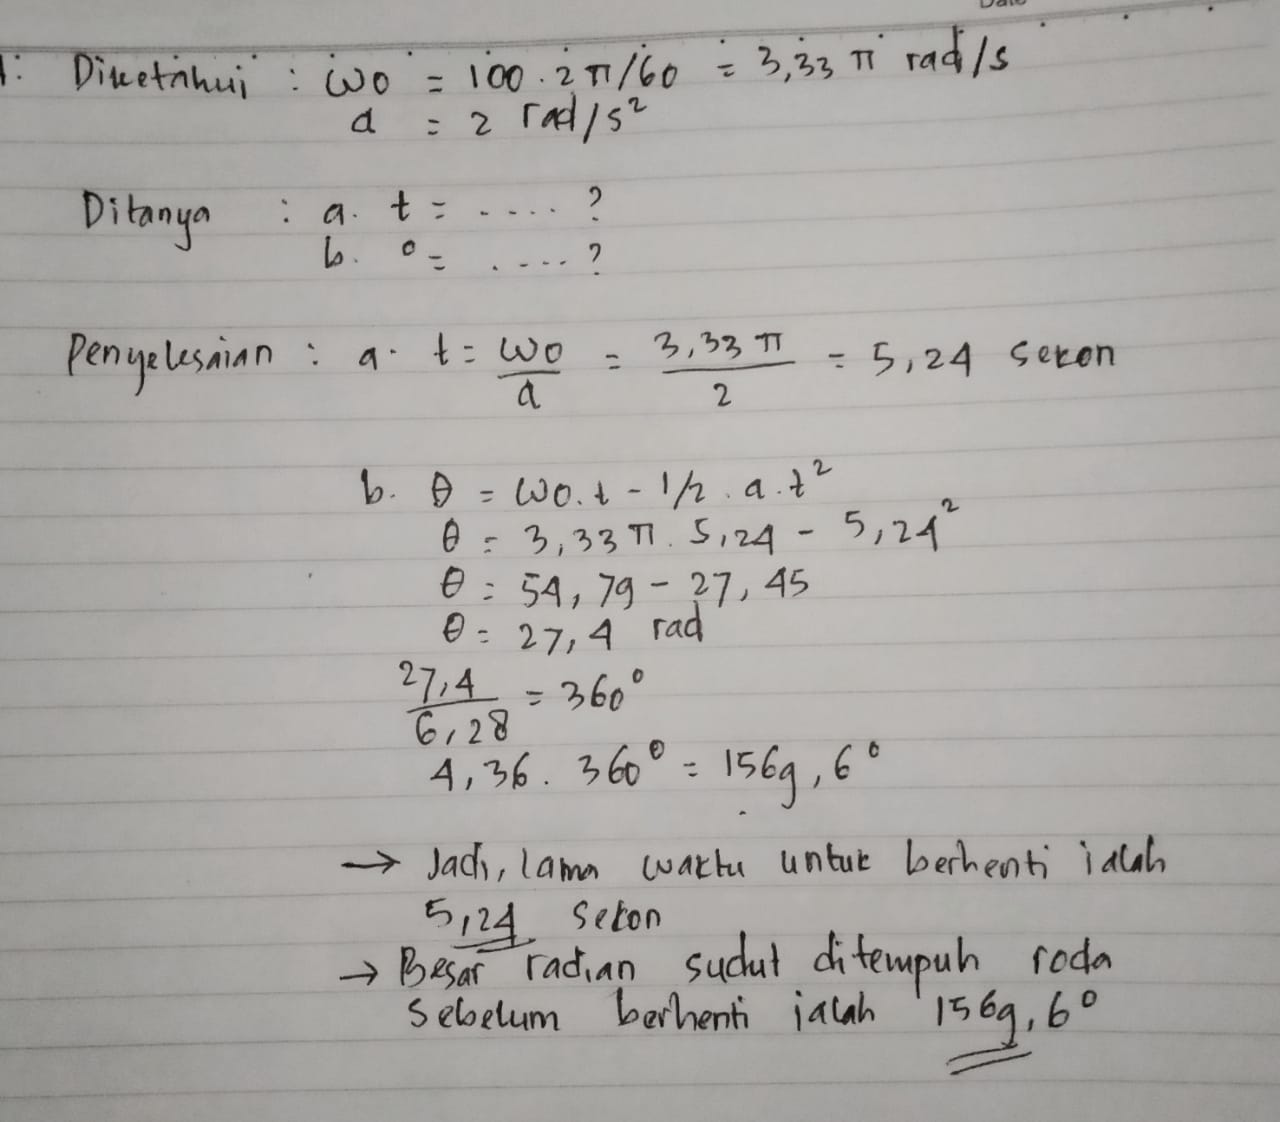 Date
1. Diketahui : ωo = 100 . 2 π/60 = 3,33 π rad/s
a = 2 rad/s²
Ditanya : a. t = .... ?
b. o = .... ?
Penyelesaian : a. t = ωo/a = 3,33 π/2 = 5,24 sekon
b. θ = ωo.t - 1/2 . a.t²
θ = 3,33 π . 5,24 - 5,24²
θ = 54,79 - 27,45
θ = 27,4 rad
27,4/6,28 = 360°
4,36 . 360° = 1569,6°
→ Jadi, lama waktu untuk berhenti ialah
5,24 sekon
→ Besar radian sudut ditempuh roda
sebelum berhenti ialah 1569,6°